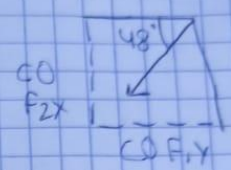 48°
CO
F2x
CO F1y